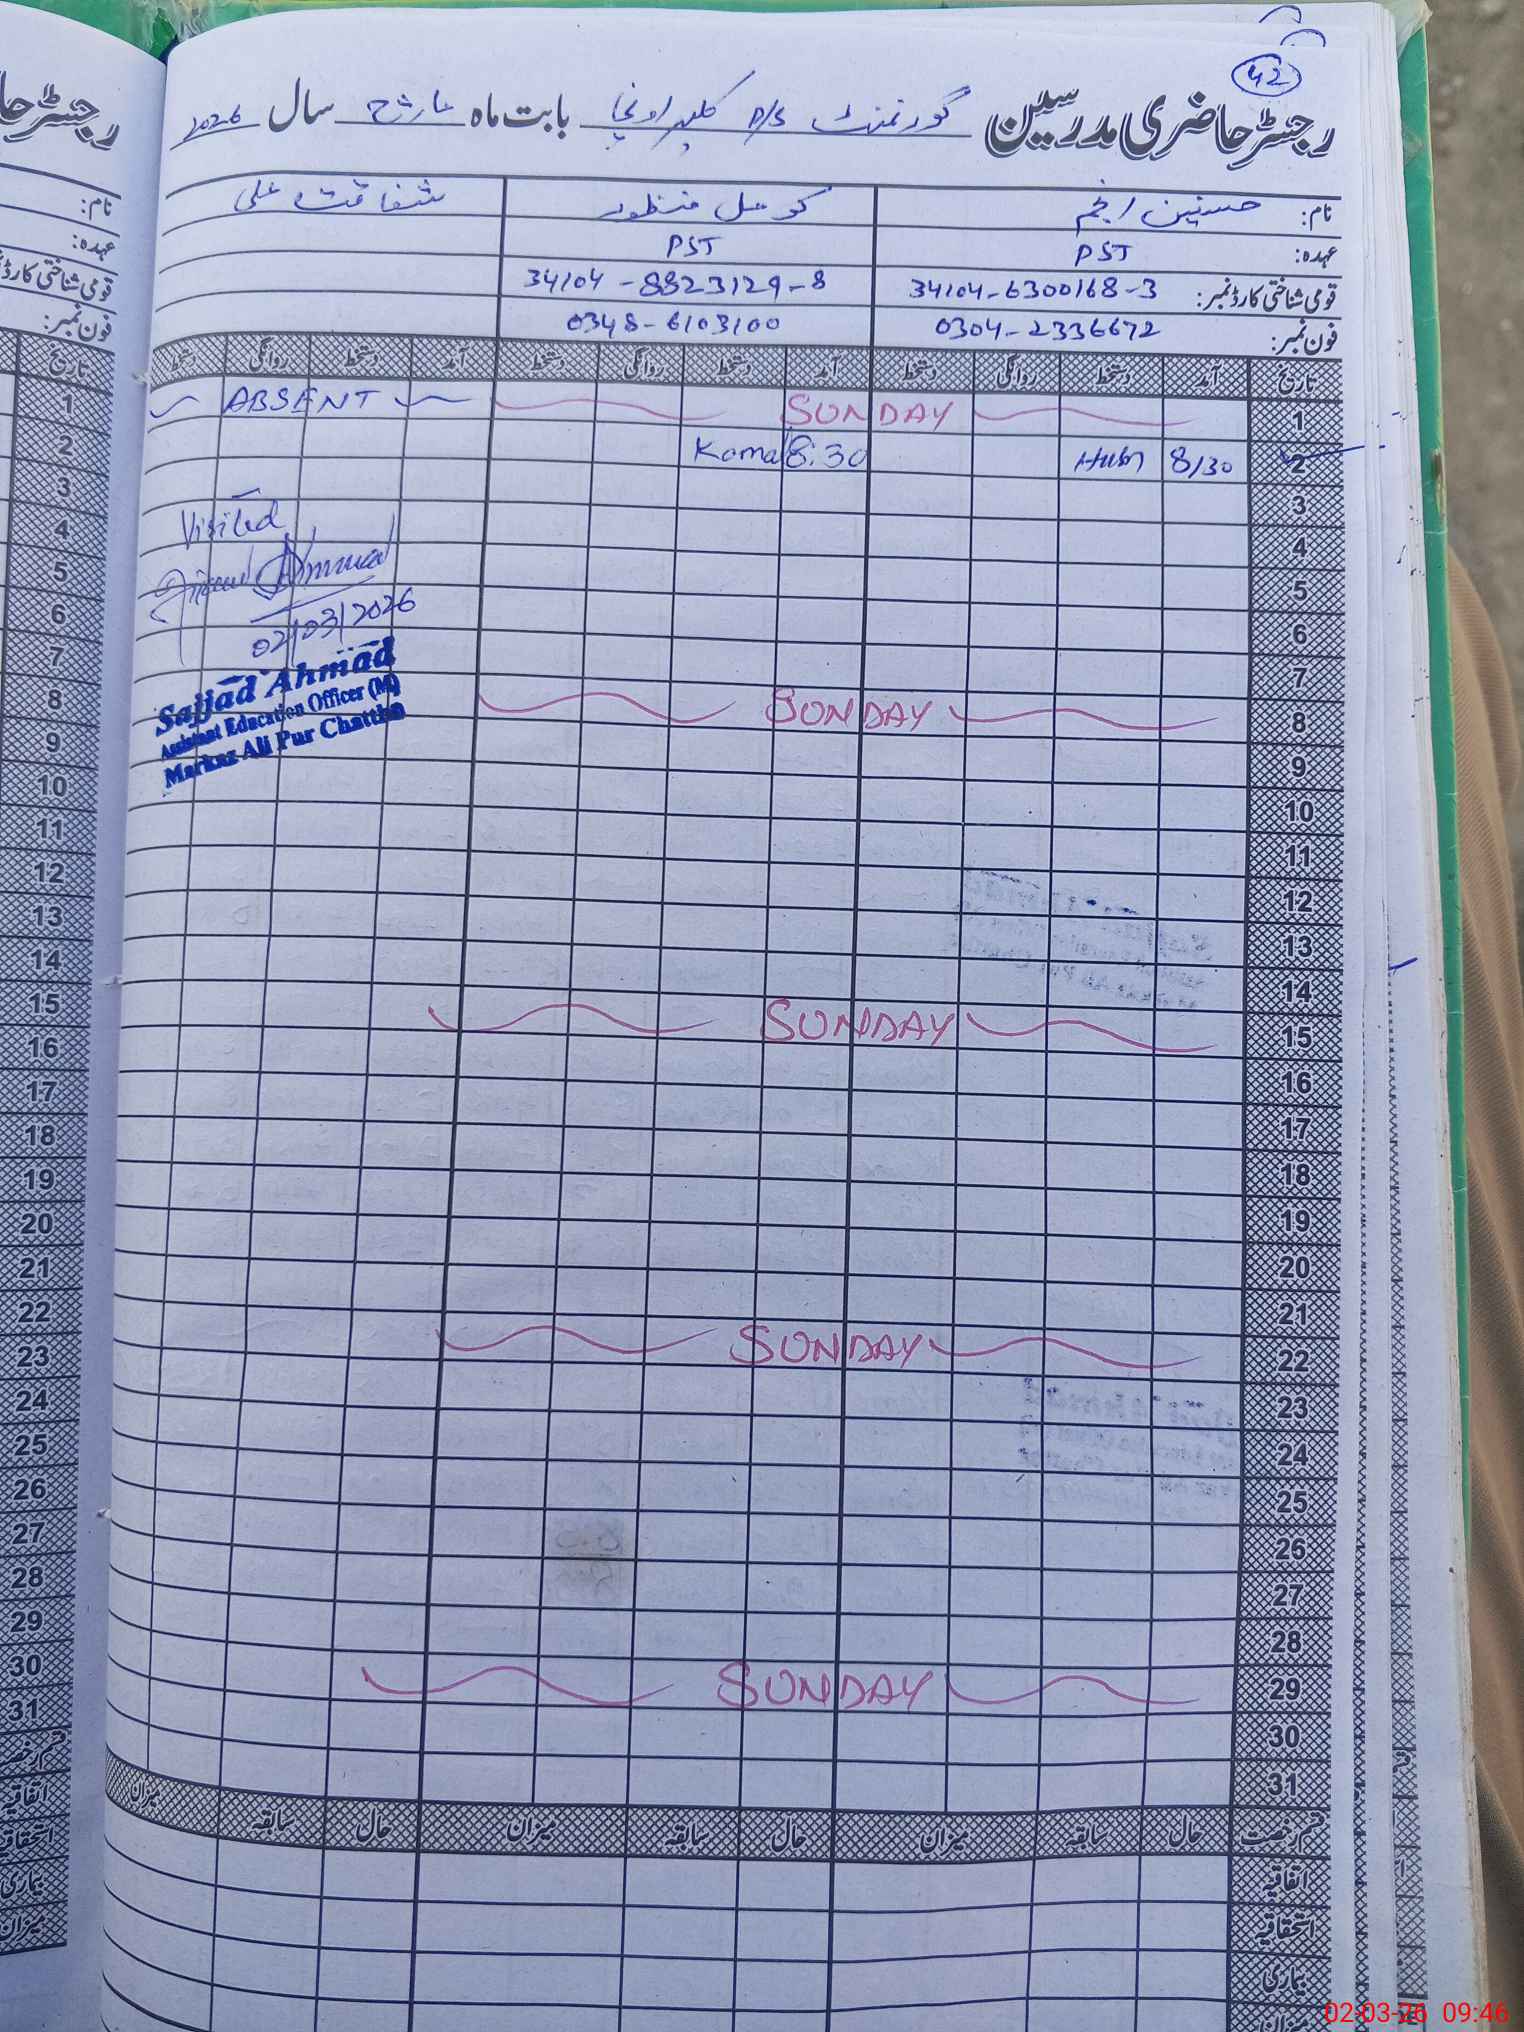 42
رجسٹر حاضری مدرسین گورنمنٹ P/S کلیر اونچا بابت ماہ مارچ سال 2026
نام: حسنین انجم کومل منظور شفاقت علی
عہدہ: PST PST
قومی شناختی کارڈ نمبر: 34104-6300168-3 34104-8823129-8
فون نمبر: 0304-2336672 0348-6103100
تاریخ آمد دستخط روانگی دستخط آمد دستخط روانگی دستخط آمد دستخط روانگی دستخط
1 SUNDAY ABSENT
2 8/30 8:30 Komal
3
Visited
4
5
Ahmad
6
02/03/2026
7
Sajjad Ahmad
8 SUNDAY
Assistant Education Officer (M)
Markaz Ali Pur Chattha
9
10
11
12
13
14
15 SUNDAY
16
17
18
19
20
21
22 SUNDAY
23
24
25
26
27
28
29 SUNDAY
30
31
قسم رخصت حال سابقہ میزان حال سابقہ میزان حال سابقہ میزان
اتفاقیہ
استحقاقیہ
بیماری
میزان
رجسٹر حا
نام:
عہدہ:
قومی شناختی کارڈ
فون نمبر:
تاریخ
1
2
3
4
5
6
7
8
9
10
11
12
13
14
15
16
17
18
19
20
21
22
23
24
25
26
27
28
29
30
31
قسم رخصت
اتفاقیہ
استحقاقیہ
بیماری
میزان
02-03-26 09:46